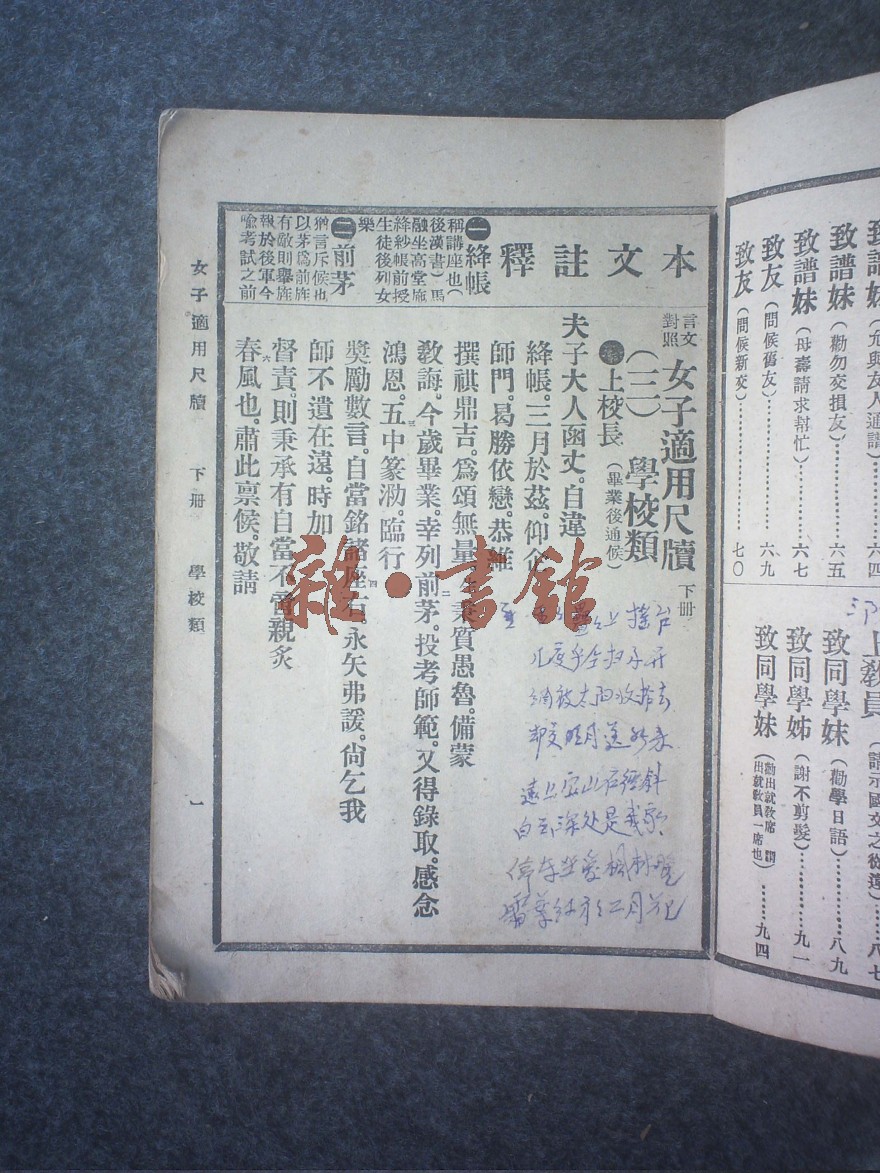 致譜妹（勸勿交損友）⋯⋯六五
致譜妹（母壽請求幫忙）⋯⋯六七
致友（問候舊友）⋯⋯六九
致友（問候新交）⋯⋯七〇
上教員
致同學妹（勸學日語）⋯⋯八九
致同學姊（謝不剪髮）⋯⋯九一
致同學妹（勸出就教席 謂出就教員一席也）⋯⋯九四
本文註釋
一 絳帳
稱講座也（
後漢書）馬
融坐高堂施
絳紗帳前授
生徒後列女
樂
二 前茅
猶言斥候也
以茅為前旌
有敵則舉旌
報於後軍今
喻考試之前
言文對照 女子適用尺牘 下冊
（三） 學校類
上校長（畢業後通候）
夫子大人函丈。自違
絳帳。三月於茲。仰企
師門。曷勝依戀。恭維
撰祺鼎吉。為頌無量。 秉質愚魯。備蒙
教誨。今歲畢業。幸列前茅。投考師範。又得錄取。感念
鴻恩。五中篆泐。臨行
獎勵數言。自當銘諸座右。永矢弗諼。尙乞我
師不遺在遠。時加
督責。則秉承有自當不啻親炙
春風也。肅此禀候。敬請
女子適用尺牘 下冊 學校類 一
上 瑤台
几度 全 子 开
被太阳收 去
明月送 来
远上 山 径斜
白云深处
停车坐爱枫林
二月花
雜·書館